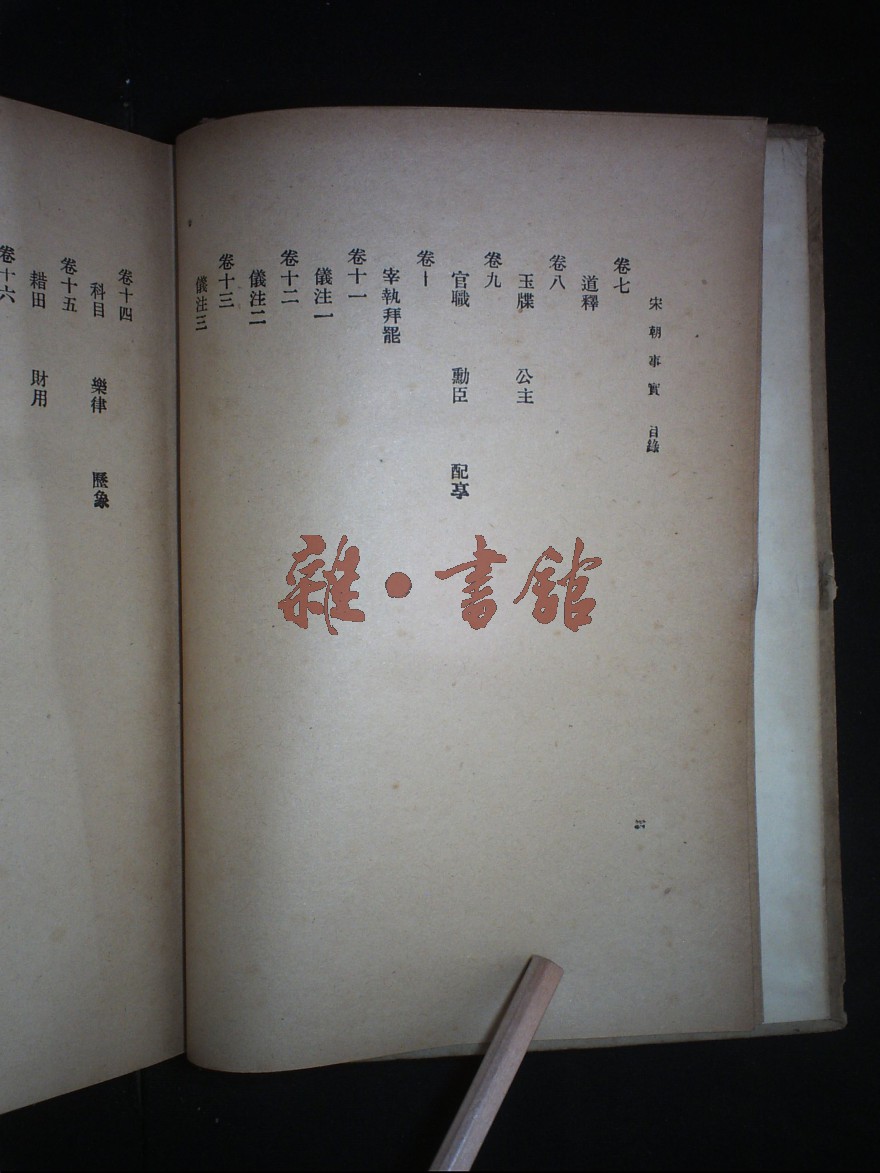 宋朝事實 目錄
卷七
道釋
卷八
玉牒 公主
卷九
官職 勳臣 配享
卷十
宰執拜罷
卷十一
儀注一
卷十二
儀注二
卷十三
儀注三
卷十四
科目 樂律 曆象
卷十五
耤田 財用
卷十六
雜·書館